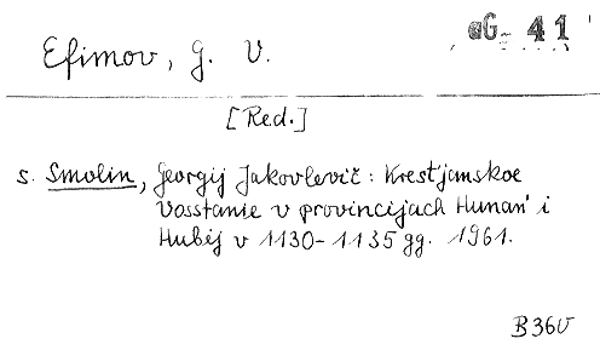 aG- 41
Efimov, G. V.
[Red.]
s. Smolin, Georgij Jakovlevič: Krest'janskoe
vosstanie v provincijach Hunan' i
Hubėj v 1130-1135 gg. 1961.
B36V